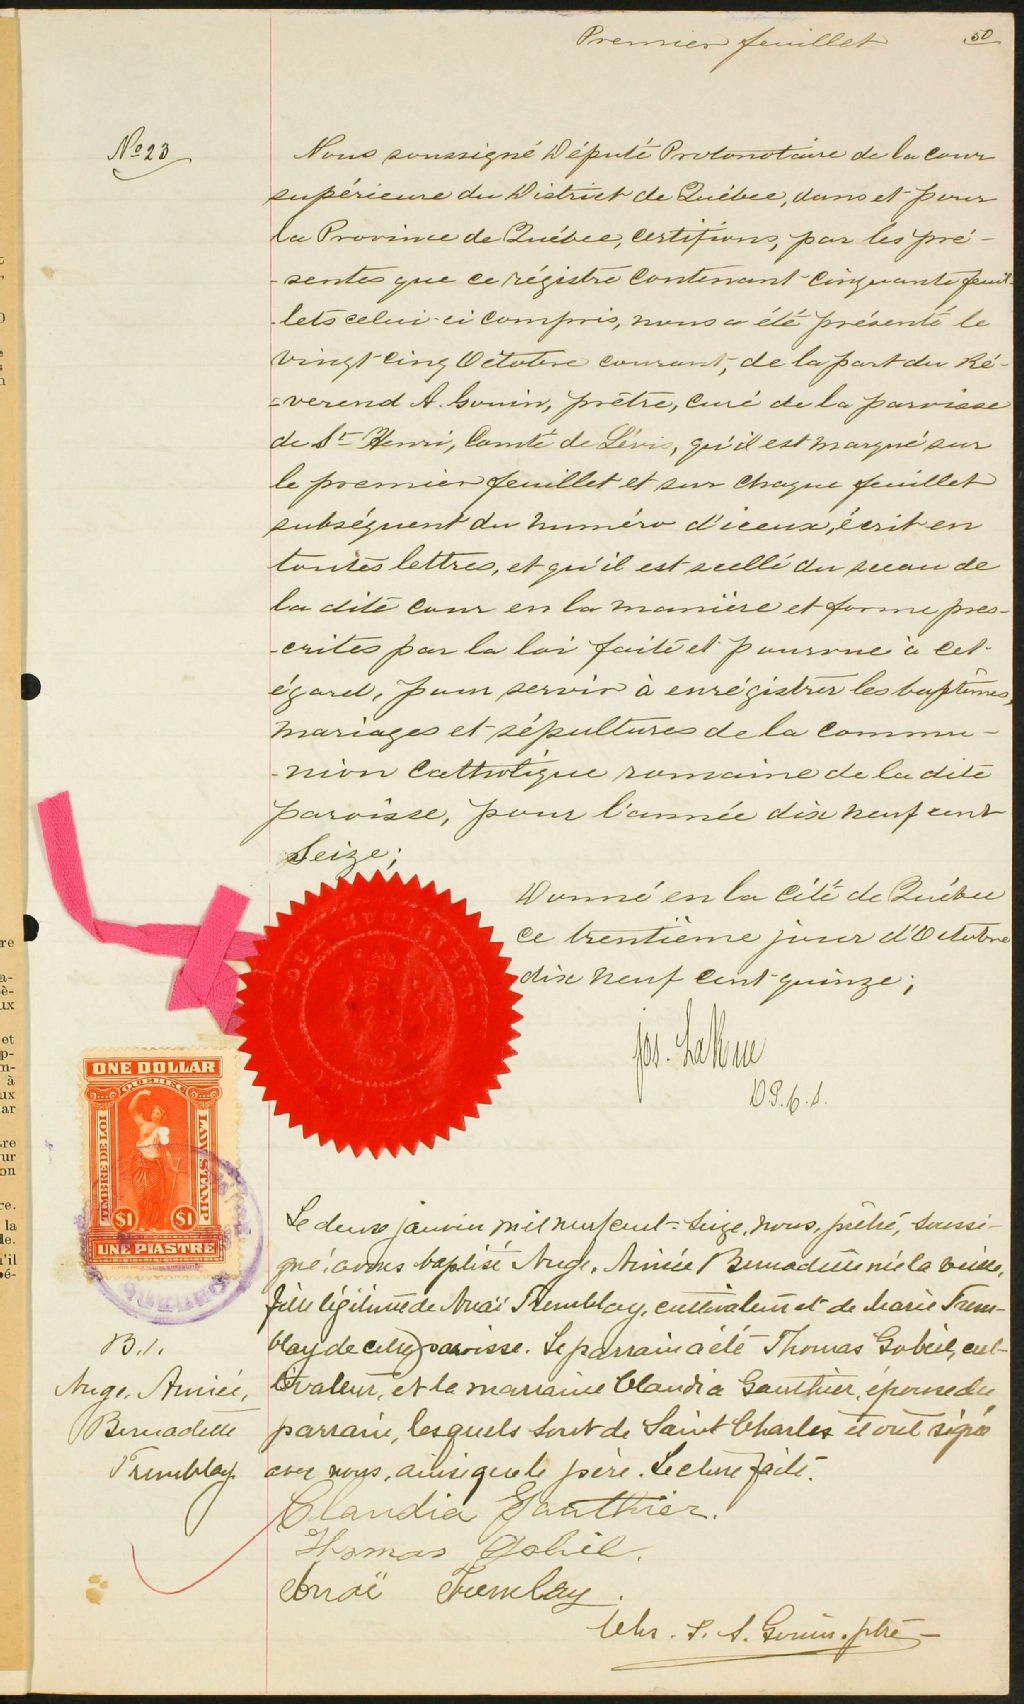 Premier feuillet
50
No 23
Nous soussigné Député Protonotaire de la cour
supérieure du District de Québec, dans et pour
la Province de Québec, certifions, par les pré-
-sentes que ce régistre contenant cinquante feuil-
-lets celui-ci compris, nous a été présenté le
vingt cinq Octobre courant, de la part du Ré-
-verend A. Gouin, prêtre, curé de la paroisse
de St Henri, Comté de Lévis, qu'il est marqué sur
le premier feuillet et sur chaque feuillet
subséquent du numéro d'iceux, écrit en
toutes lettres, et qu'il est scellé du sceau de
la dite cour en la manière et forme pres-
-crites par la loi faite et pourvue à cet
égard, pour servir à enrégistrer les baptêmes,
mariages et sépultures de la commu-
-nion catholique romaine de la dite
paroisse, pour l'année dix neuf cent
Seize;
Donné en la Cité de Québec
ce trentième jour d'Octobre
dix neuf cent quinze;
Jos. LaRue
D.P.C.S.
ONE DOLLAR
QUEBEC
TIMBRE DE LOI
LAW STAMP
$1 $1
UNE PIASTRE
QUEBEC
Le deux janvier mil neuf cent-seize, nous, prêtre, soussi-
gné, avons baptisé Ange, Aimée, Bernadette née la veille,
fille légitime de Anaï Tremblay, cultivateur et de Marie Trem-
blay de cette paroisse. Le parrain a été Thomas Gobeil, cul-
tivateur, et la marraine Claudia Gauthier, épouse du
parrain, lesquels sont de Saint Charles et ont signé
avec nous, ainsi que le père. Lecture faite.
B.1.
Ange, Aimée,
Bernadette
Tremblay
Claudia Gauthier.
Thomas Gobeil.
Anaï Tremblay.
Chs. S. A. Gouin. ptre